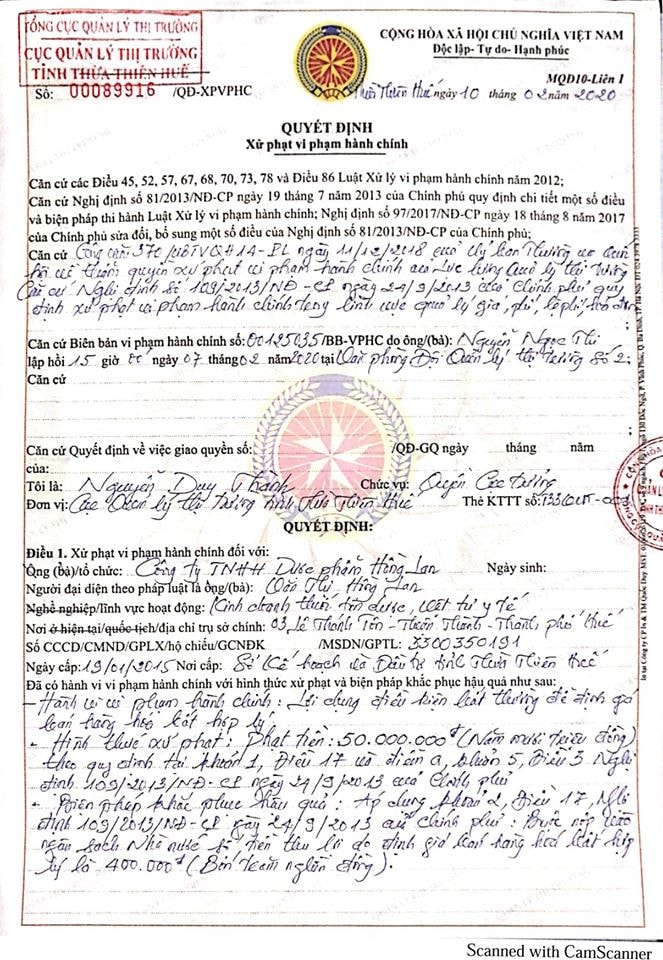 TỔNG CỤC QUẢN LÝ THỊ TRƯỜNG
CỤC QUẢN LÝ THỊ TRƯỜNG
TỈNH THỪA THIÊN HUẾ
Số: 00089916 /QĐ-XPVPHC
CỘNG HÒA XÃ HỘI CHỦ NGHĨA VIỆT NAM
Độc lập- Tự do- Hạnh phúc
MQĐ10-Liên 1
Thừa Thiên Huế ngày 10 tháng 02 năm 2020
QUYẾT ĐỊNH
Xử phạt vi phạm hành chính
Căn cứ các Điều 45, 52, 57, 67, 68, 70, 73, 78 và Điều 86 Luật Xử lý vi phạm hành chính năm 2012;
Căn cứ Nghị định số 81/2013/NĐ-CP ngày 19 tháng 7 năm 2013 của Chính phủ quy định chi tiết một số điều
và biện pháp thi hành Luật Xử lý vi phạm hành chính; Nghị định số 97/2017/NĐ-CP ngày 18 tháng 8 năm 2017
của Chính phủ sửa đổi, bổ sung một số điều của Nghị định số 81/2013/NĐ-CP của Chính phủ;
Căn cứ Công văn 370/UBTVQH14-PL ngày 11/12/2018 của Ủy ban Thường vụ Quốc
hội về thẩm quyền xử phạt vi phạm hành chính của lực lượng Quản lý thị trường
Căn cứ Nghị định số 109/2013/NĐ-CP ngày 24/9/2013 của Chính phủ quy
định xử phạt vi phạm hành chính trong lĩnh vực quản lý giá, phí, lệ phí, hóa đơn
Căn cứ Biên bản vi phạm hành chính số: 00125035/BB-VPHC do ông/(bà): Nguyễn Ngọc Thi
lập hồi 15 giờ 00 ngày 07 tháng 02 năm 2020 tại Văn phòng Đội Quản lý thị trường số 2;
Căn cứ
Căn cứ Quyết định về việc giao quyền số: /QĐ-GQ ngày tháng năm
của:
Tôi là: Nguyễn Duy Thành Chức vụ: Quyền Cục trưởng
Đơn vị: Cục Quản lý thị trường tỉnh Thừa Thiên Huế Thẻ KTTT số:
QUYẾT ĐỊNH:
Điều 1. Xử phạt vi phạm hành chính đối với:
Ông (bà)/tổ chức: Công ty TNHH Dược phẩm Hồng Lan Ngày sinh:
Người đại diện theo pháp luật là ông/(bà): Văn Thị Hồng Lan
Nghề nghiệp/lĩnh vực hoạt động: Kinh doanh thuốc tân dược, vật tư y tế
Nơi ở hiện tại/quốc tịch/địa chỉ trụ sở chính: 03 Lê Thánh Tôn - Thuận Thành - Thành phố Huế
Số CCCD/CMND/GPLX/hộ chiếu/GCNĐK /MSDN/GPTL: 3300350191
Ngày cấp: 19/01/2015 Nơi cấp: Sở Kế hoạch và Đầu tư tỉnh Thừa Thiên Huế
Đã có hành vi vi phạm hành chính với hình thức xử phạt và biện pháp khắc phục hậu quả như sau:
- Hành vi vi phạm hành chính: Lợi dụng điều kiện bất thường để định giá
bán hàng hóa bất hợp lý
- Hình thức xử phạt: Phạt tiền: 50.000.000đ (Năm mươi triệu đồng)
theo quy định tại khoản 1, Điều 17 và điểm a, khoản 5, Điều 3 Nghị
định 109/2013/NĐ-CP ngày 24/9/2013 của Chính phủ
- Biện pháp khắc phục hậu quả: Áp dụng khoản 2, Điều 17, Nghị
định 109/2013/NĐ-CP ngày 24/9/2013 của Chính phủ: Buộc nộp vào
ngân sách Nhà nước số tiền thu lợi do định giá bán hàng hóa bất hợp
lý là 400.000đ (Bốn trăm nghìn đồng).
Scanned with CamScanner